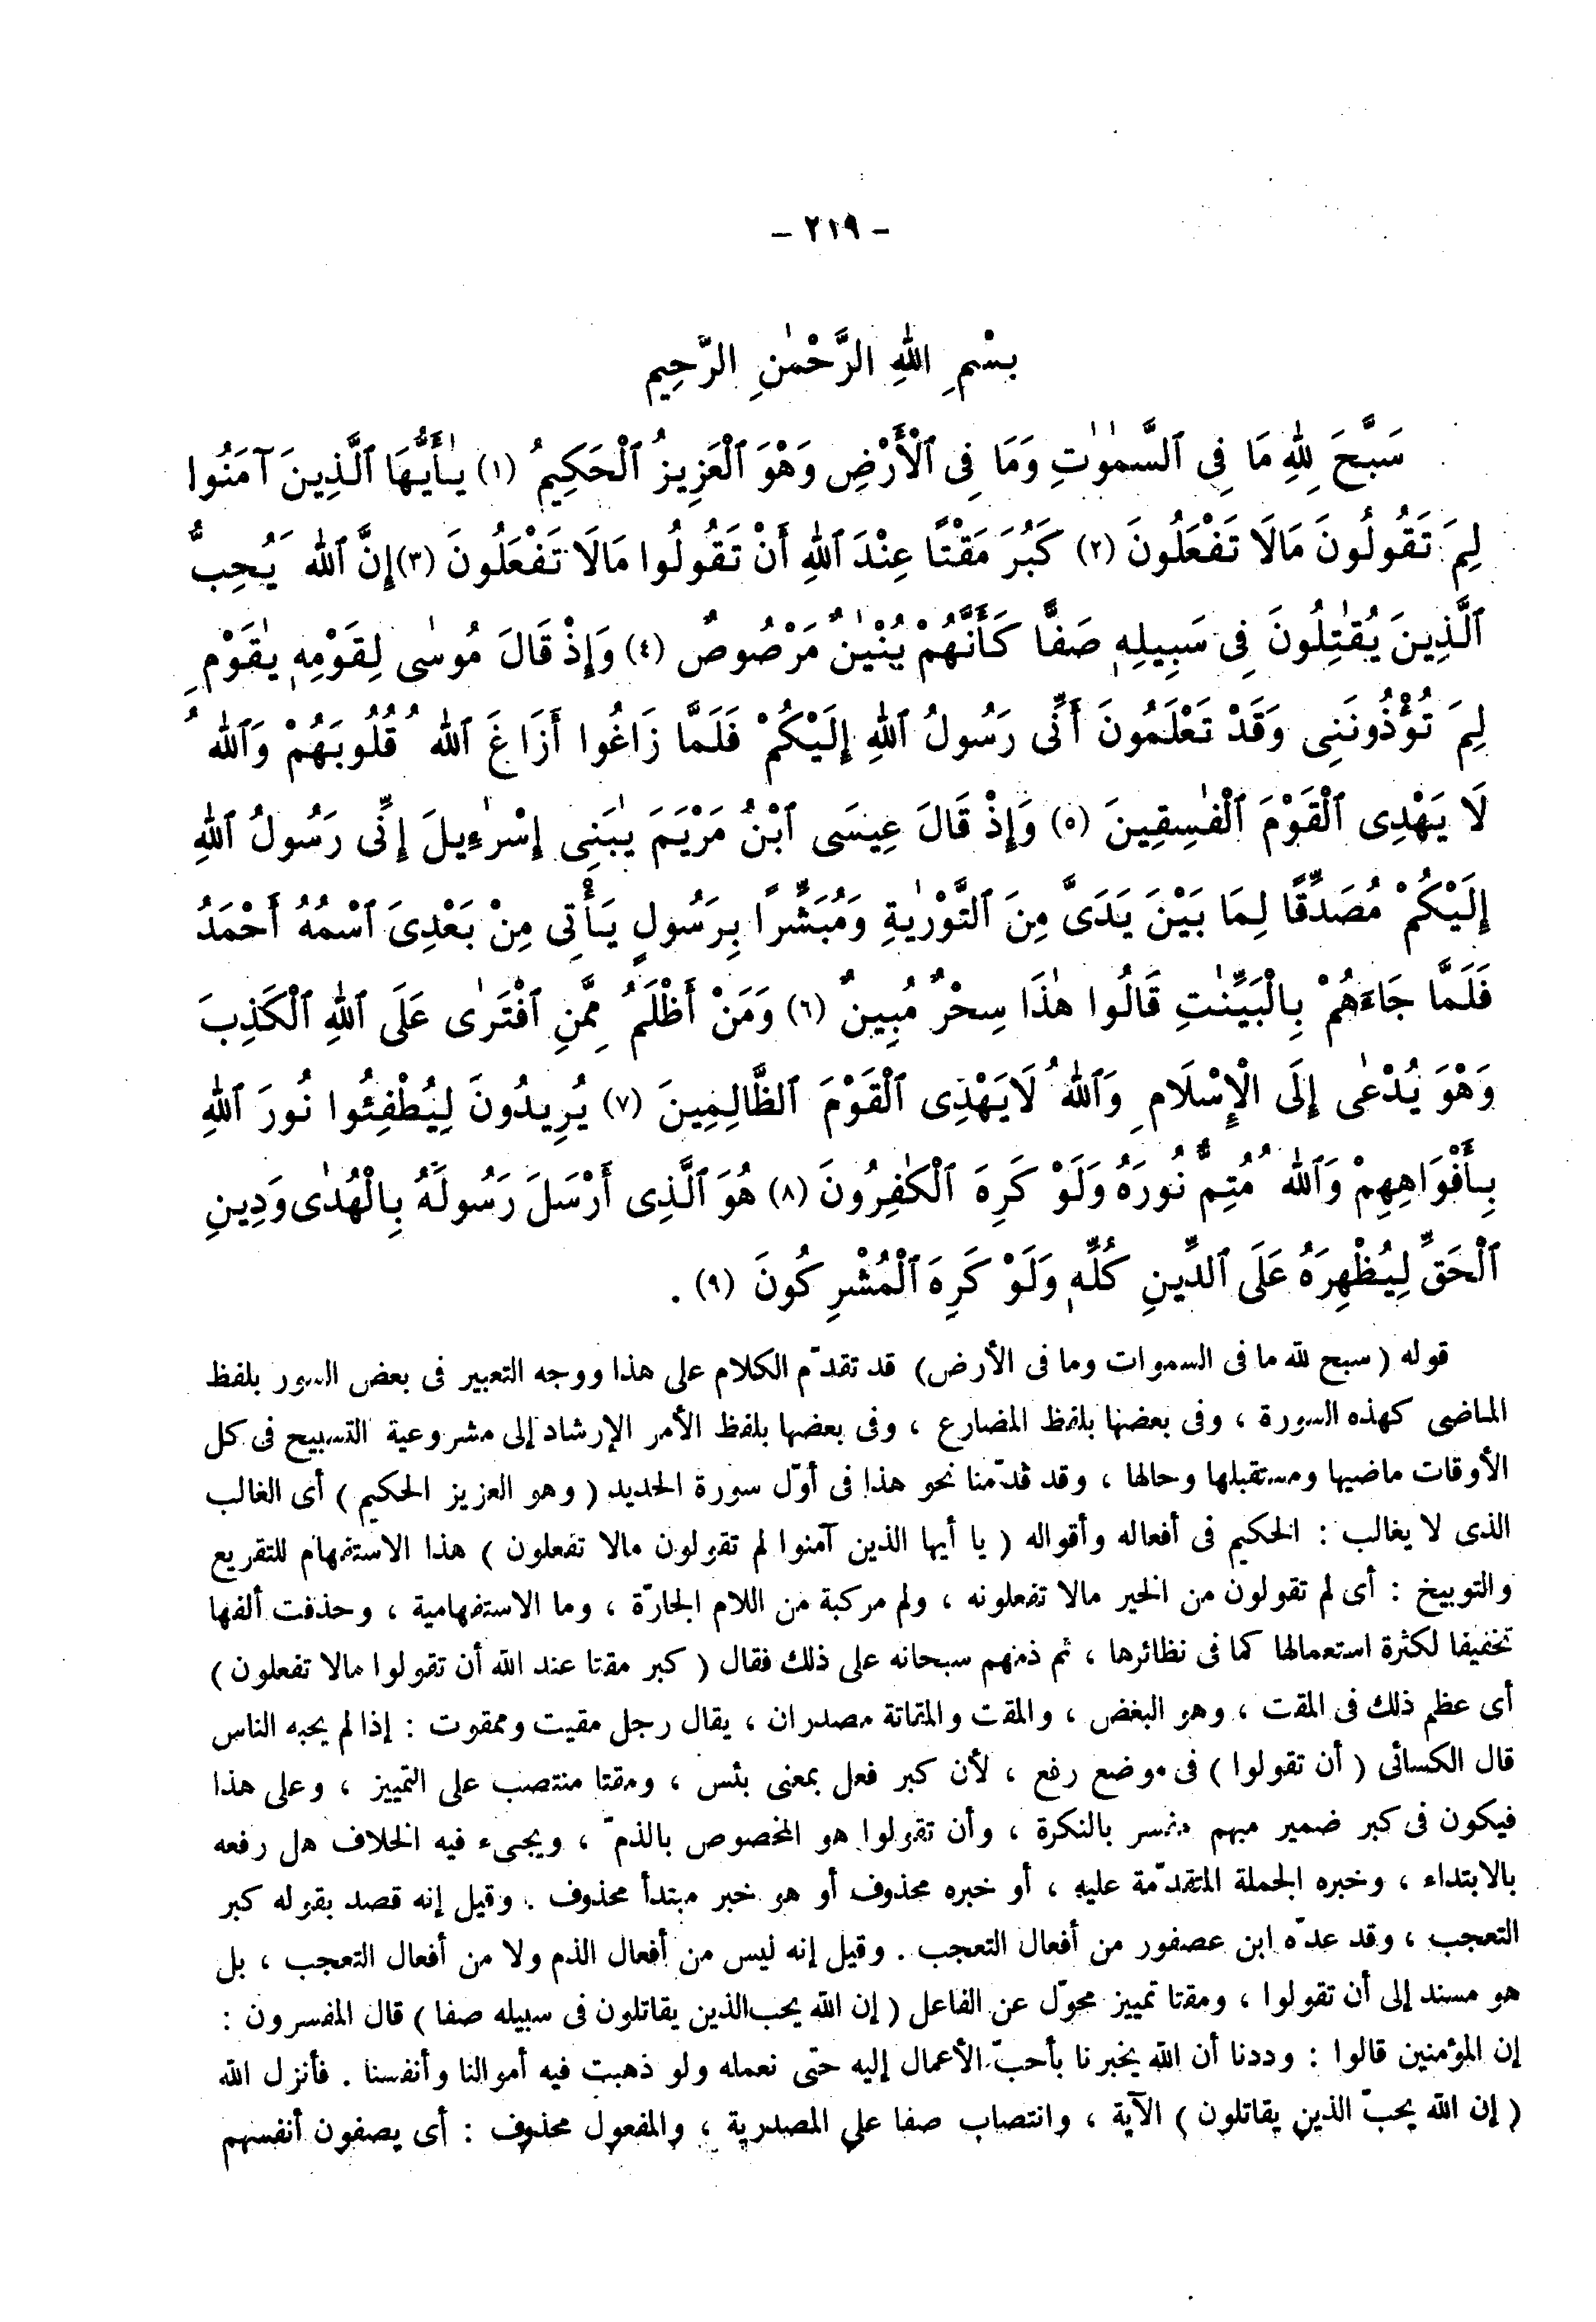 - ٢١٩ -
بِسْمِ اللهِ الرَّحْمٰنِ الرَّحِيمِ
سَبَّحَ لِلهِ مَا فِى ٱلسَّمٰوٰتِ وَمَا فِى ٱلْأَرْضِ وَهْوَ ٱلْعَزِيزُ ٱلْحَكِيمُ (١) يٰأَيُّهَا ٱلَّذِينَ آمَنُوا
لِمَ تَقُولُونَ مَالَا تَفْعَلُونَ (٢) كَبُرَ مَقْتًا عِنْدَ ٱللهِ أَنْ تَقُولُوا مَالَا تَفْعَلُونَ (٣) إِنَّ ٱللهَ يُحِبُّ
ٱلَّذِينَ يُقٰتِلُونَ فِى سَبِيلِهِ صَفًّا كَأَنَّهُمْ بُنْيٰنٌ مَرْصُوصٌ (٤) وَإِذْ قَالَ مُوسٰى لِقَوْمِهِ يٰقَوْمِ
لِمَ تُؤْذُونَنِى وَقَدْ تَعْلَمُونَ أَنِّى رَسُولُ ٱللهِ إِلَيْكُمْ فَلَمَّا زَاغُوا أَزَاغَ ٱللهُ قُلُوبَهُمْ وَٱللهُ
لَا يَهْدِى ٱلْقَوْمَ ٱلْفٰسِقِينَ (٥) وَإِذْ قَالَ عِيسَى ٱبْنُ مَرْيَمَ يٰبَنِى إِسْرٰءِيلَ إِنِّى رَسُولُ ٱللهِ
إِلَيْكُمْ مُصَدِّقًا لِمَا بَيْنَ يَدَىَّ مِنَ ٱلتَّوْرٰيةِ وَمُبَشِّرًا بِرَسُولٍ يَأْتِى مِنْ بَعْدِىَ ٱسْمُهُ أَحْمَدُ
فَلَمَّا جَاءَهُمْ بِالْبَيِّنٰتِ قَالُوا هٰذَا سِحْرٌ مُبِينٌ (٦) وَمَنْ أَظْلَمُ مِمَّنِ ٱفْتَرٰى عَلَى ٱللهِ ٱلْكَذِبَ
وَهْوَ يُدْعٰى إِلَى ٱلْإِسْلَامِ وَٱللهُ لَايَهْدِى ٱلْقَوْمَ ٱلظَّالِمِينَ (٧) يُرِيدُونَ لِيُطْفِئُوا نُورَ ٱللهِ
بِأَفْوَاهِهِمْ وَٱللهُ مُتِمٌّ نُورَهُ وَلَوْ كَرِهَ ٱلْكٰفِرُونَ (٨) هُوَ ٱلَّذِى أَرْسَلَ رَسُولَهُ بِالْهُدٰى وَدِينِ
ٱلْحَقِّ لِيُظْهِرَهُ عَلَى ٱلدِّينِ كُلِّهِ وَلَوْ كَرِهَ ٱلْمُشْرِكُونَ (٩) .
قوله ( سبح لله ما فى السموات وما فى الأرض ) قد تقدّم الكلام على هذا ووجه التعبير فى بعض السور بلفظ
الماضى كهذه السورة ، وفى بعضها بلفظ المضارع ، وفى بعضها بلفظ الأمر الإرشاد إلى مشروعية التسبيح فى كل
الأوقات ماضيها ومستقبلها وحالها ، وقد قدّمنا نحو هذا فى أوّل سورة الحديد ( وهو العزيز الحكيم ) أى الغالب
الذى لا يغالب : الحكيم فى أفعاله وأقواله ( يا أيها الذين آمنوا لم تقولون مالا تفعلون ) هذا الاستفهام للتقريع
والتوبيخ : أى لم تقولون من الخير مالا تفعلونه ، ولم مركبة من اللام الجارّة ، وما الاستفهامية ، وحذفت ألفها
تخفيفا لكثرة استعمالها كما فى نظائرها ، ثم ذمهم سبحانه على ذلك فقال ( كبر مقتا عند الله أن تقولوا مالا تفعلون )
أى عظم ذلك فى المقت ، وهو البغض ، والمقت والمقاتة مصدران ، يقال رجل مقيت وممقوت : إذا لم يحبه الناس
قال الكسائى ( أن تقولوا ) فى موضع رفع ، لأن كبر فعل بمعنى بئس ، ومقتا منتصب على التمييز ، وعلى هذا
فيكون فى كبر ضمير مبهم مفسر بالنكرة ، وأن تقولوا هو المخصوص بالذمّ ، ويجىء فيه الخلاف هل رفعه
بالابتداء ، وخبره الجملة المتقدّمة عليه ، أو خبره محذوف أو هو خبر مبتدأ محذوف . وقيل إنه قصد بقوله كبر
التعجب ، وقد عدّه ابن عصفور من أفعال التعجب . وقيل إنه ليس من أفعال الذم ولا من أفعال التعجب ، بل
هو مسند إلى أن تقولوا ، ومقتا تمييز محوّل عن الفاعل ( إن الله يحب الذين يقاتلون فى سبيله صفا ) قال المفسرون :
إن المؤمنين قالوا : وددنا أن الله يخبرنا بأحبّ الأعمال إليه حتى نعمله ولو ذهبت فيه أموالنا وأنفسنا . فأنزل الله
( إن الله يحبّ الذين يقاتلون ) الآية ، وانتصاب صفا على المصدرية ، والمفعول محذوف : أى يصفون أنفسهم